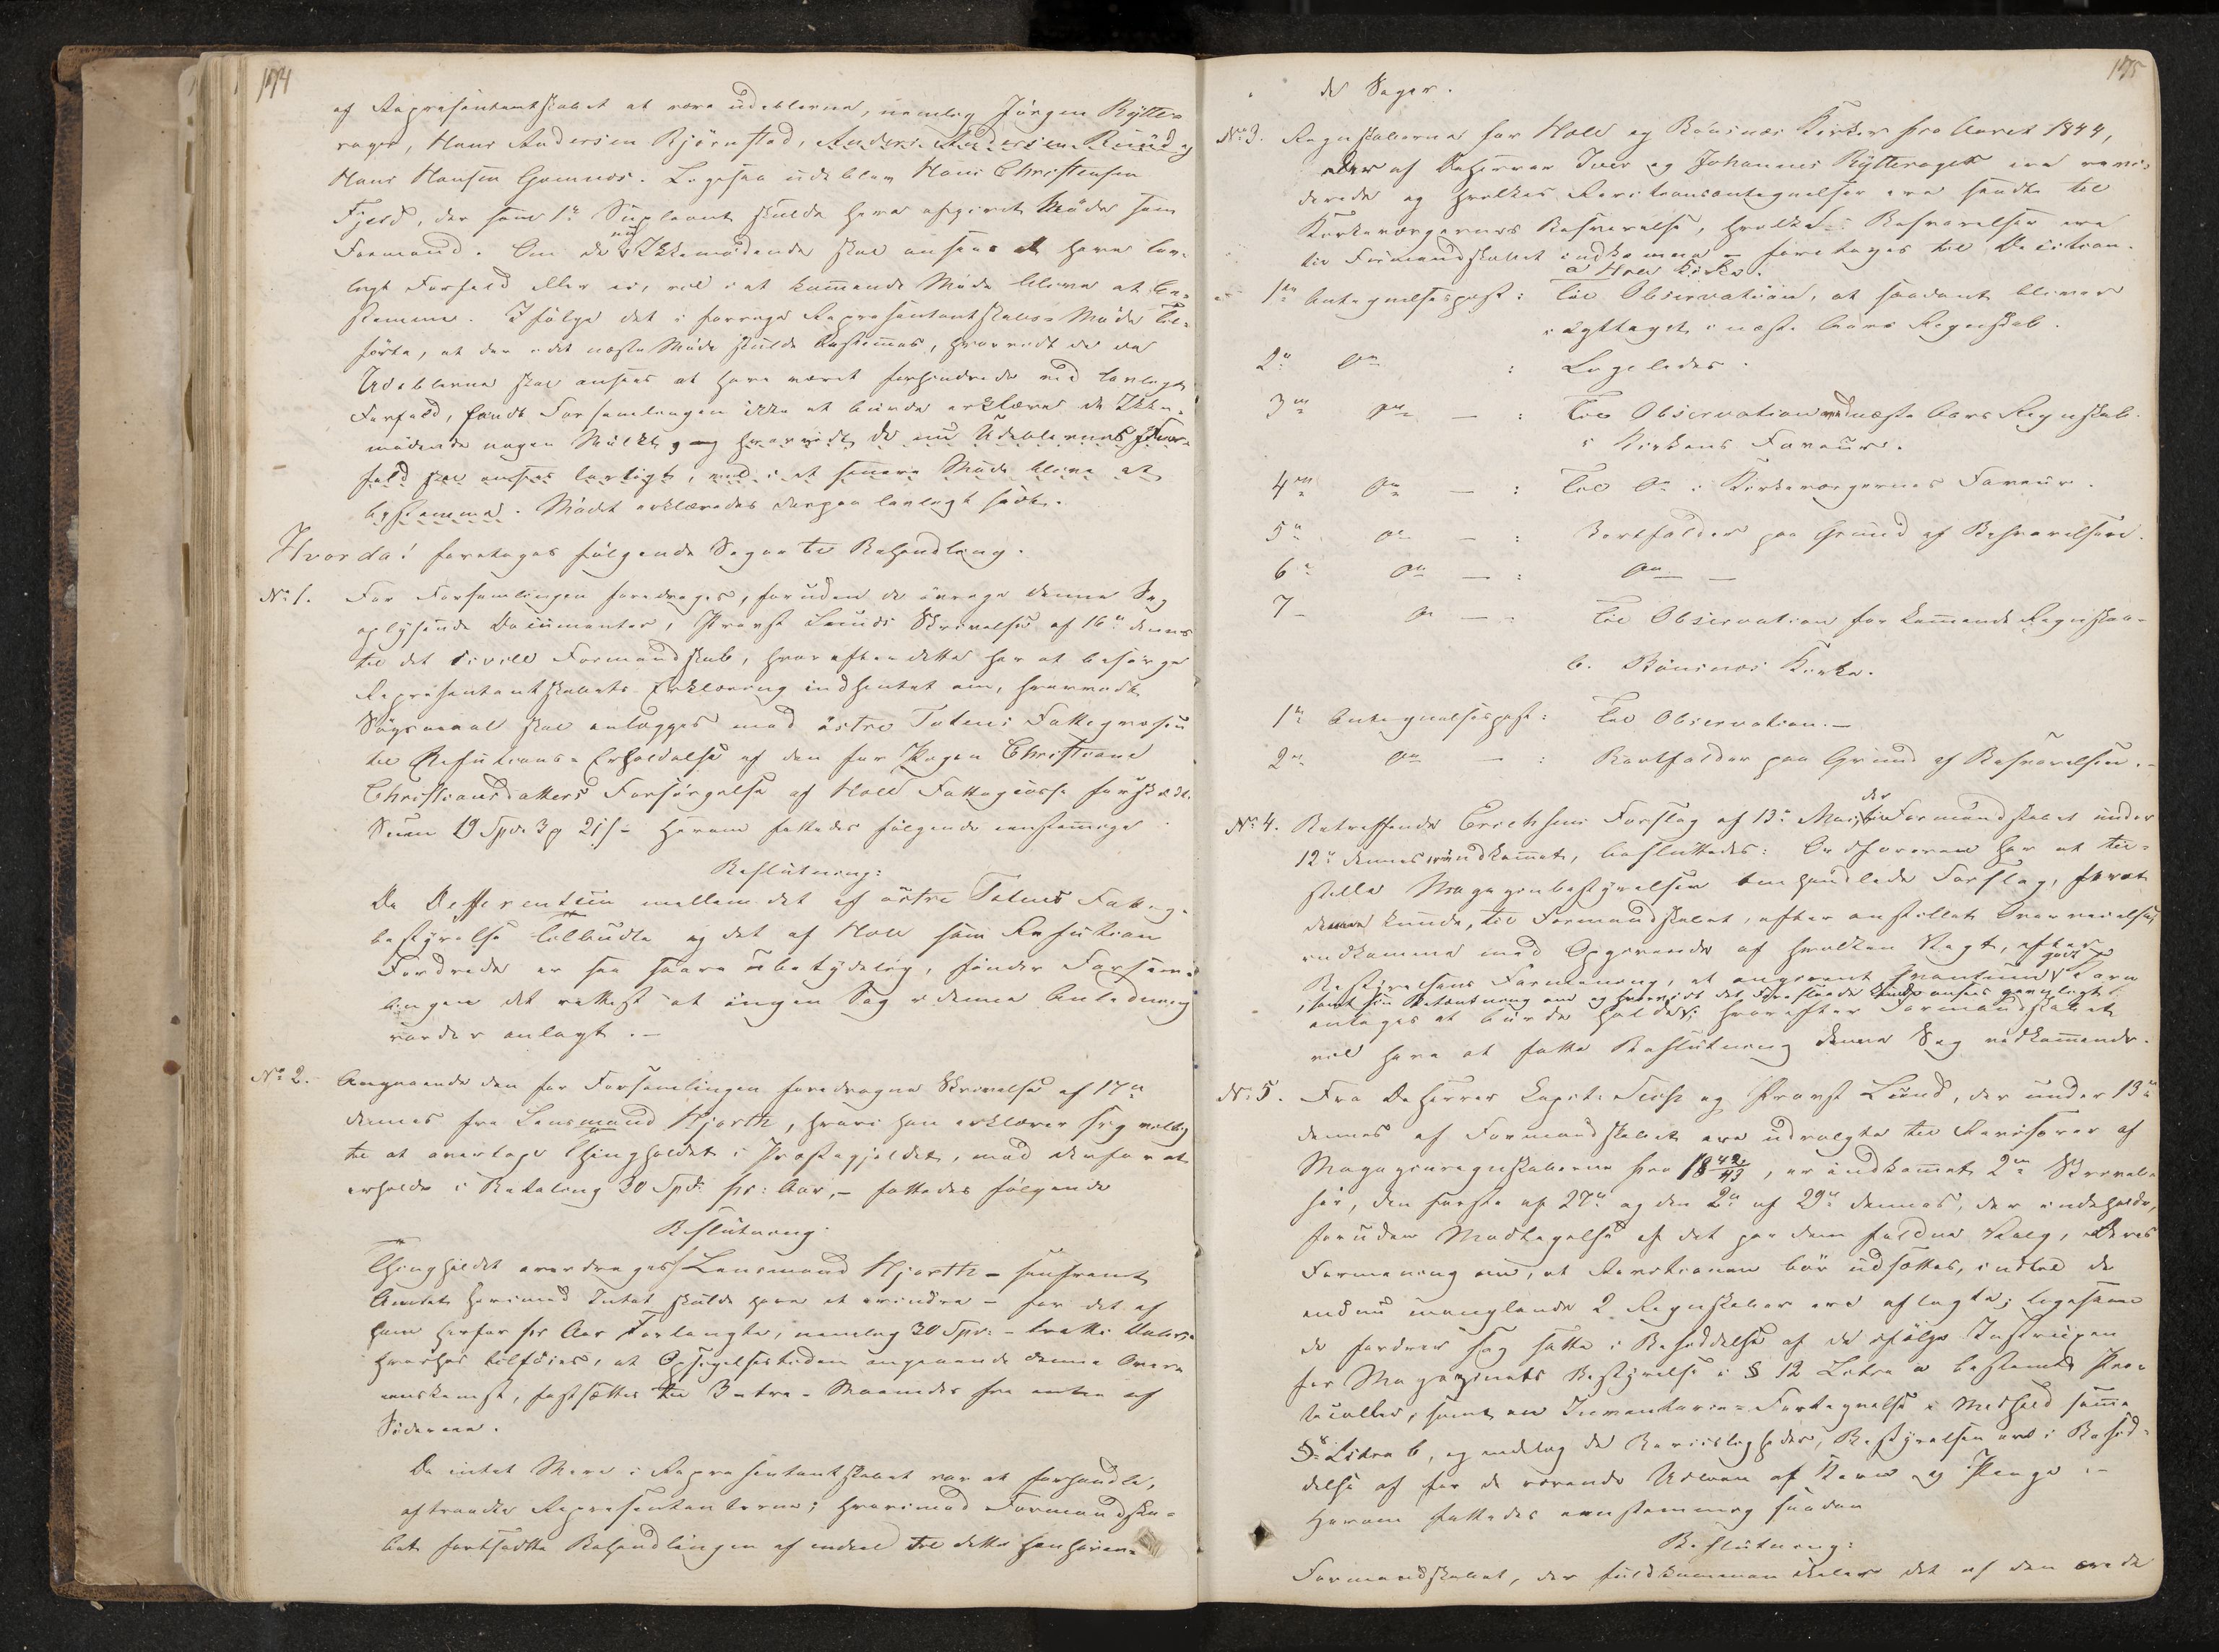 174
af Repræsentantskabet at være udeblevne, nemlig Jörgen Rytte-
rager, Hans Andersen Bjørnstad, Anders Andersen Rúúd og
Hans Hansen Gamnæs. Ligesaa udeblev Hans Christensen
Fjeld, der som 1ste Súpleant skúlde have afgivet Möde som
Formand. Om de nú Ikkemödende skal ansees at have lov-
ligt Forfald eller ei, vil i et kommende Möde blive at be-
stemme. Ifölge det i forrige Repræsentantskabs-Möde Til-
förte, at der i det næste Möde skúlde bestemmes, hvorvidt de da
Udeblevne skal ansees at have været forhindrede ved lovligt
Forfald, fandt Forsamlingen ikke at búrde erklære de Ikke-
mödende nogen Múlkt, og hvorvidt de nú Udeblevnes For-
fald skal ansees lovligt, vil i et senere Möde blive at
bestemme. Mödet erklæredes derpaa lovligt sat.
Hvorda! foretoges fölgende Sager til Behandling.
No 1. For Forsamlingen foredroges, foruden de övrige denne Sag
oplysende Documenter, Provst Lúnds Skrivelse af 16de dennes
til det civile Formandskab, hvorefter dette har at besörge
Repræsentantskabets Erklæring indhentet om, hvorvidt
Sögsmaal skal anlægges mod östre Totens Fattigvæsen
til Refutions-Erholdelse af den for Pigen Christiane
Christiansdatters Forsörgelse af Hole Fattigcasse forskudte
Súm 19 Spd. 3 ₰ 21 s - Herom fattedes fölgende eenstemmige
Beslútning:
Da Differentsen mellem det af östre Totens Fattig-
bestyrelse Tilbúdte og det af Hole som Refution
Fordrede er saa saare úbetydelig, finder Forsam-
lingen det rettest at ingen Sag i denne Anledning
vorder anlagt.-
No 2. Angaaende den for Forsamlingen foredragne Skrivelse af 17de
dennes fra Lensmand Hjorth, hvori han erklærer sig villig
til at overtage Thingholdet i Præstegjeldet, mod derfor at
erholde i Betaling 30 Spd. pr: Aar, - fattedes fölgende
Beslútning
Thingholdet overdrages Lensmand Hjorth - saafremt
Amtet herimod Intet skúlde have at erindre - for det af
ham herfor pr Aar Forlangte, nemlig 30 Spd: - tretti Daler -
hvorhos tilföies, at Opsigelsestiden angaaende denne Overe
enskomst, fastsættes til 3 - tre - Maaneder fra enten af
Siderne.
Da intet Mere i Repræsentantskabet var at forhandle,
aftraadte Repræsentanterne; hvorimod Formandska-
bet fortsatte Behandlingen af endeel til dette henhören-
175
de Sager.
No 3. Regnskaberne for Hole og Bönsnæs Kirker for Aaret 1844,
der af DeHerrer Iver og Johannes Rytterager ere revi-
derede og hvilkes Revisionsantegnelser ere sendte til
Kirkeværgernes Besvarelse, hvilke Besvarelser ere
til Formandskabet indkomne - foretoges til Decision.
a Hole Kirke.
1ste Antegnelsespost: Til Observation, at saadant bliver
iagttaget i næste Aars Regnskab.
2de Do : Ligeledes.
3die Do — : Til Observation ved næste Aars Regnskab
i Kirkens Faveur.
4de Do — : Til Do i Kirkeværgernes Faveur.
5te Do — : Bortfalder paa Grund af Besvarelsen.
6te Do — : Do —
7 - Do — : Til Observation for kommende Regnskaber
b. Bönsnæs Kirke.
1ste Antegnelsespost: Til Observation. —
2den Do — : Bortfalder paa Grúnd af Besvarelsen. -
No 4. Betreffende Erichsens Forslag af 13de Mai, der til Formandskabet únder
12te dennes er indkommet, beslúttedes: Ordföreren har at til-
stille Magazinbestyrelsen omhandlede Forslag, forat
denne kunde, til Formandskabet, efter anstillet Overveielse,
indkomme med Opgivende af hvilken Vægt, efter
Bestyrelsens Formening, et angivent Qvantum godt Korn
, samt sin Betænkning om og hvorvidt det Foreslaaede kunde ansees gavnligt
antages at búrde holde; hvorefter Formandskabet
vil have at fatte Beslútning denne Sag vedkommende.
No 5. Fra DeHerrer Capit: og Provst Lúnd, der únder 13de
dennes af Formandskabet ere udvalgte til Revisorer af
Magazinregnskaberne for 18 42/43, er indkommet 2de Skrivel-
ser, den förste af 27de og den 2den af 29de dennes, der indeholde,
foruden Modtagelse af det paa dem faldne Valg, deres
Formening om, at Revisionen bör udsættes, indtil de
endnú manglende 2 Regnskaber ere aflagte; ligesom
de fordrer sig satte i Besiddelse af de ifölge Instruxen
for Magazinets Bestyrelse i § 12 Litra a bestemte Pro-
tocoller, samt en Inventarie-Fortegnelse i Medhold samme
§s Litra b, og endelig de Beviisligheder, Bestyrelsen ere i Besid-
delse af for de værende Udlaan af Korn og Penge. -
Herom fattedes eenstemmig saadan
Beslútning:
Formandskabet, der fuldkommen deler det af den ærede